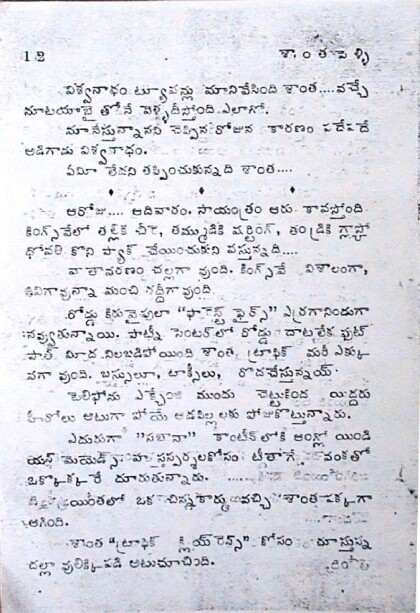 12 శాంత పెళ్ళి
విశ్వనాధం ట్యూషన్లు మానివేసింది శాంత....వచ్చే
నూటయాభై తోనే వెళ్ళదీస్తోంది ఎలాగో.
మానేస్తున్నానని చెప్పిన రోజున కారణం పదేపదే
అడిగాడు విశ్వనాధం.
ఏమీ లేదని తప్పించుకున్నది శాంత....
ఆరోజు.... ఆదివారం. సాయంత్రం ఆరు కావస్తోంది
కింగ్స్‌వేలో తల్లికి చీర, తమ్ముడికి షర్టింగ్, తండ్రికి గ్లాస్గో
ధోవతి కొని ప్యాక్ చేయించుకుని వస్తున్నది....
వాతావరణం చల్లగా వుంది. కింగ్స్‌వే విశాలంగా,
ఠీవిగావున్నా మంచి రద్దీగా వుంది.
రోడ్డు కిరువైపులా "ఫారెస్ట్ ఫైర్స్" ఎర్రగానిండుగా
నవ్వుతున్నాయి. పాట్నీ సెంటర్‌లో రోడ్డు దాటలేక ఫుట్
పాత్ మీద నిలబడిపోయింది శాంత, ట్రాఫిక్ మరీ ఎక్కు
వగా వుంది. బస్సులూ, టాక్సీలు, రొదచేస్తున్నయ్
టెలిఫోను ఎక్స్ఛేంజి ముందు చెట్టుకింద యిద్దరు
హీరోలు అటుగా పోయే ఆడపిల్లలకు పోజుకొట్టున్నారు.
ఎదురుగా "సబానా" కాంటీన్‌లోకి ఆంగ్లో యిండి
యన్ మెయిడ్స్ హస్తస్పర్శలకోసం టీత్రాగే వంకతో
ఒకొక్కక్కరే దూరుతున్నారు.
యింతలో ఒక చిన్నకార్ము వచ్చి శాంత పక్కగా
ఆగింది.
శాంత "ట్రాఫిక్ క్లియరెన్స్" కోసం చూస్తున్న
దల్లా వులిక్కిపడి అటుచూచింది.